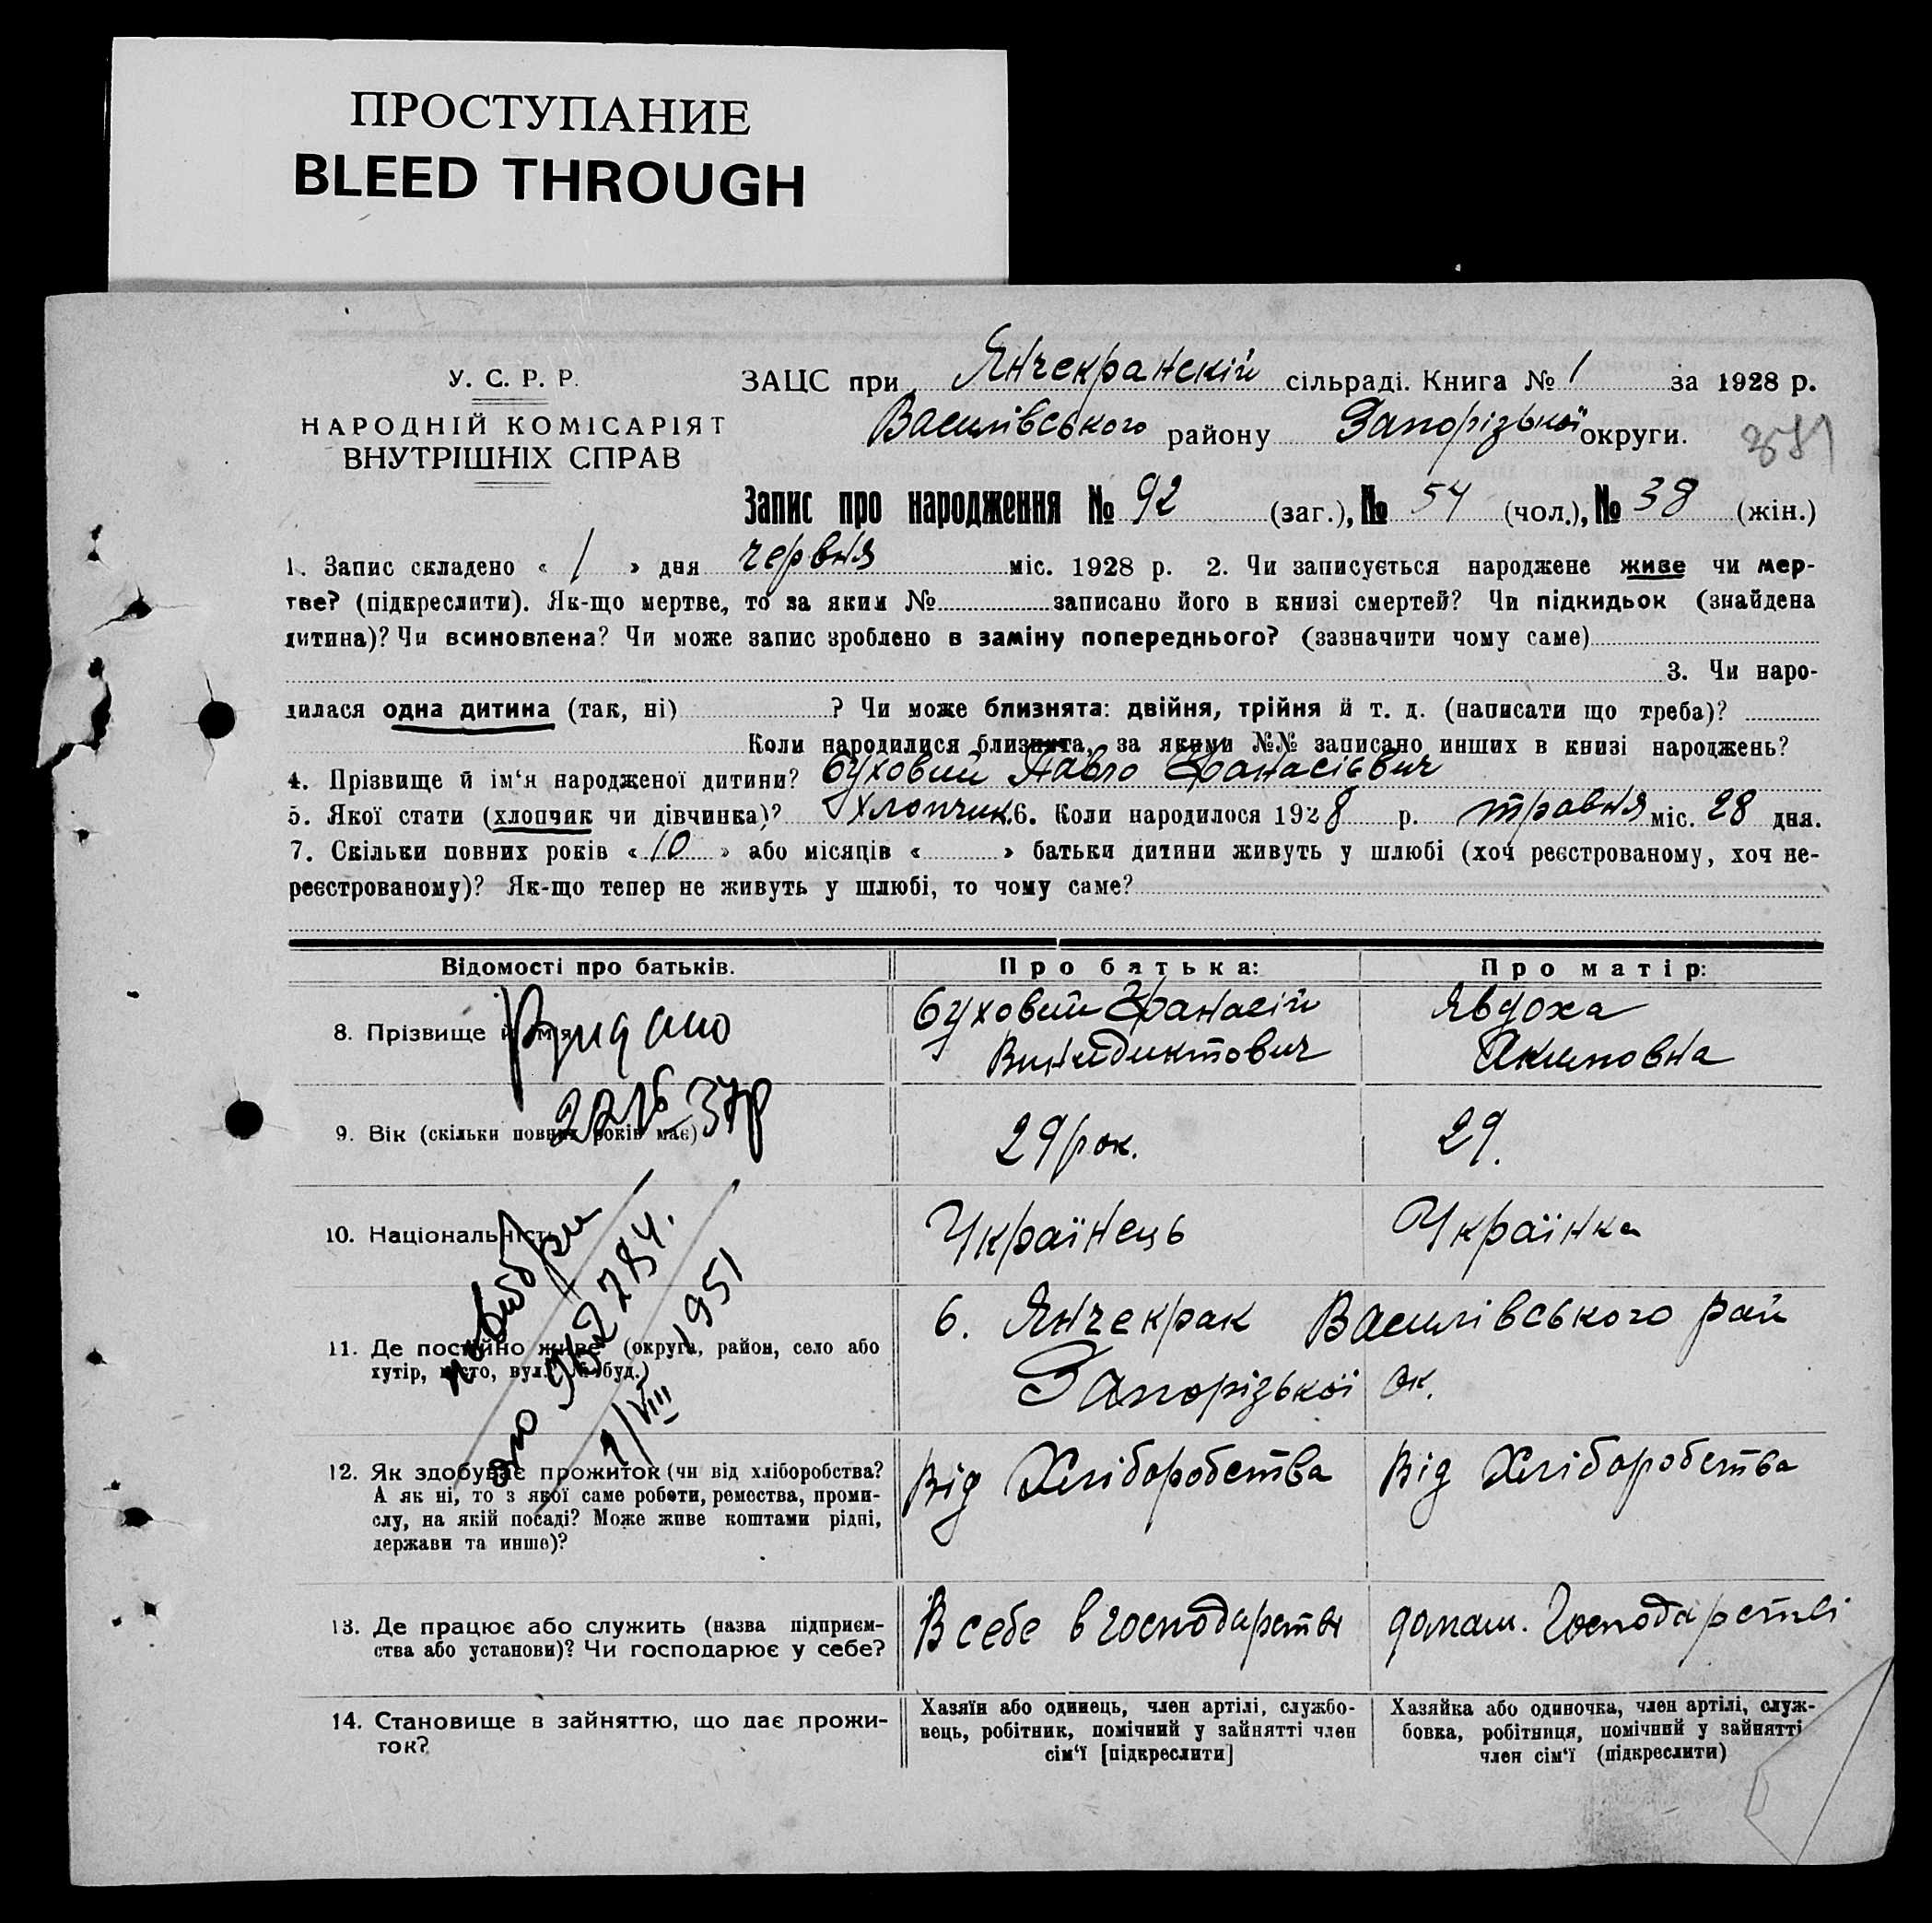 ПРОСТУПАНИЕ
BLEED THROUGH
У. С. Р. Р.
НАРОДНІЙ КОМІСАРІЯТ
ВНУТРІШНІХ СПРАВ
ЗАЦС при Янчекранскій сільраді. Книга № 1 за 1928 р.
Василівського району Запорізької округи.
Запис про народження № 92 (заг.), № 54 (чол.), № 38 (жін.)
1. Запис складено « 1 » дня червня міс. 1928 р. 2. Чи записується народжене живе чи мер-
тве? (підкреслити). Як-що мертве, то за яким № записано його в книзі смертей? Чи підкидьок (знайдена
дитина)? Чи всиновлена? Чи може запис зроблено в заміну попереднього? (зазначити чому саме)
3. Чи наро-
дилася одна дитина (так, ні) ? Чи може близнята: двійня, трійня й т. д. (написати що треба)?
Коли народилися близнята, за якими №№ записано инших в книзі народжень?
4. Прізвище й ім‘я народженої дитини? Буховий Павло Афанасієвич
5. Якої стати (хлопчик чи дівчинка)? Хлопчик 6. Коли народилося 1928 р. травня міс. 28 дня.
7. Скільки повних років « 10 » або місяців « » батьки дитини живуть у шлюбі (хоч реєстрованому, хоч не-
реєстрованому)? Як-що тепер не живуть у шлюбі, то чому саме?
Відомості про батьків. Про батька: Про матір:
8. Прізвище й ім‘я
Буховий Афанасій
Винидиктович
Явдоха
Акимовна
Видано
9. Вік (скільки повних років має)
29 рок.
29.
10. Національність
Українець
Українка
952784.
1/VIII 1951
11. Де постійно живе (округа, район, село або
хутір, місто, вул. № буд.)
б. Янчекрак Василівського рай
Запорізької ок.
12. Як здобуває прожиток (чи від хліборобства?
А як ні, то з якої саме роботи, ремества, проми-
слу, на якій посаді? Може живе коштами рідні,
держави та инше)?
Від Хліборобства
Від Хліборобства
13. Де працює або служить (назва підприєм-
ства або установи)? Чи господарює у себе?
В себе в господарстві
домаш. Господарстві
14. Становище в зайняттю, що дає прожи-
ток?
Хазяїн або одинець, член артілі, службо-
вець, робітник, помічний у зайнятті член
сім‘ї [підкреслити]
Хазяйка або одиночка, член артілі, служ-
бовка, робітниця, помічний у зайнятті
член сім‘ї (підкреслити)